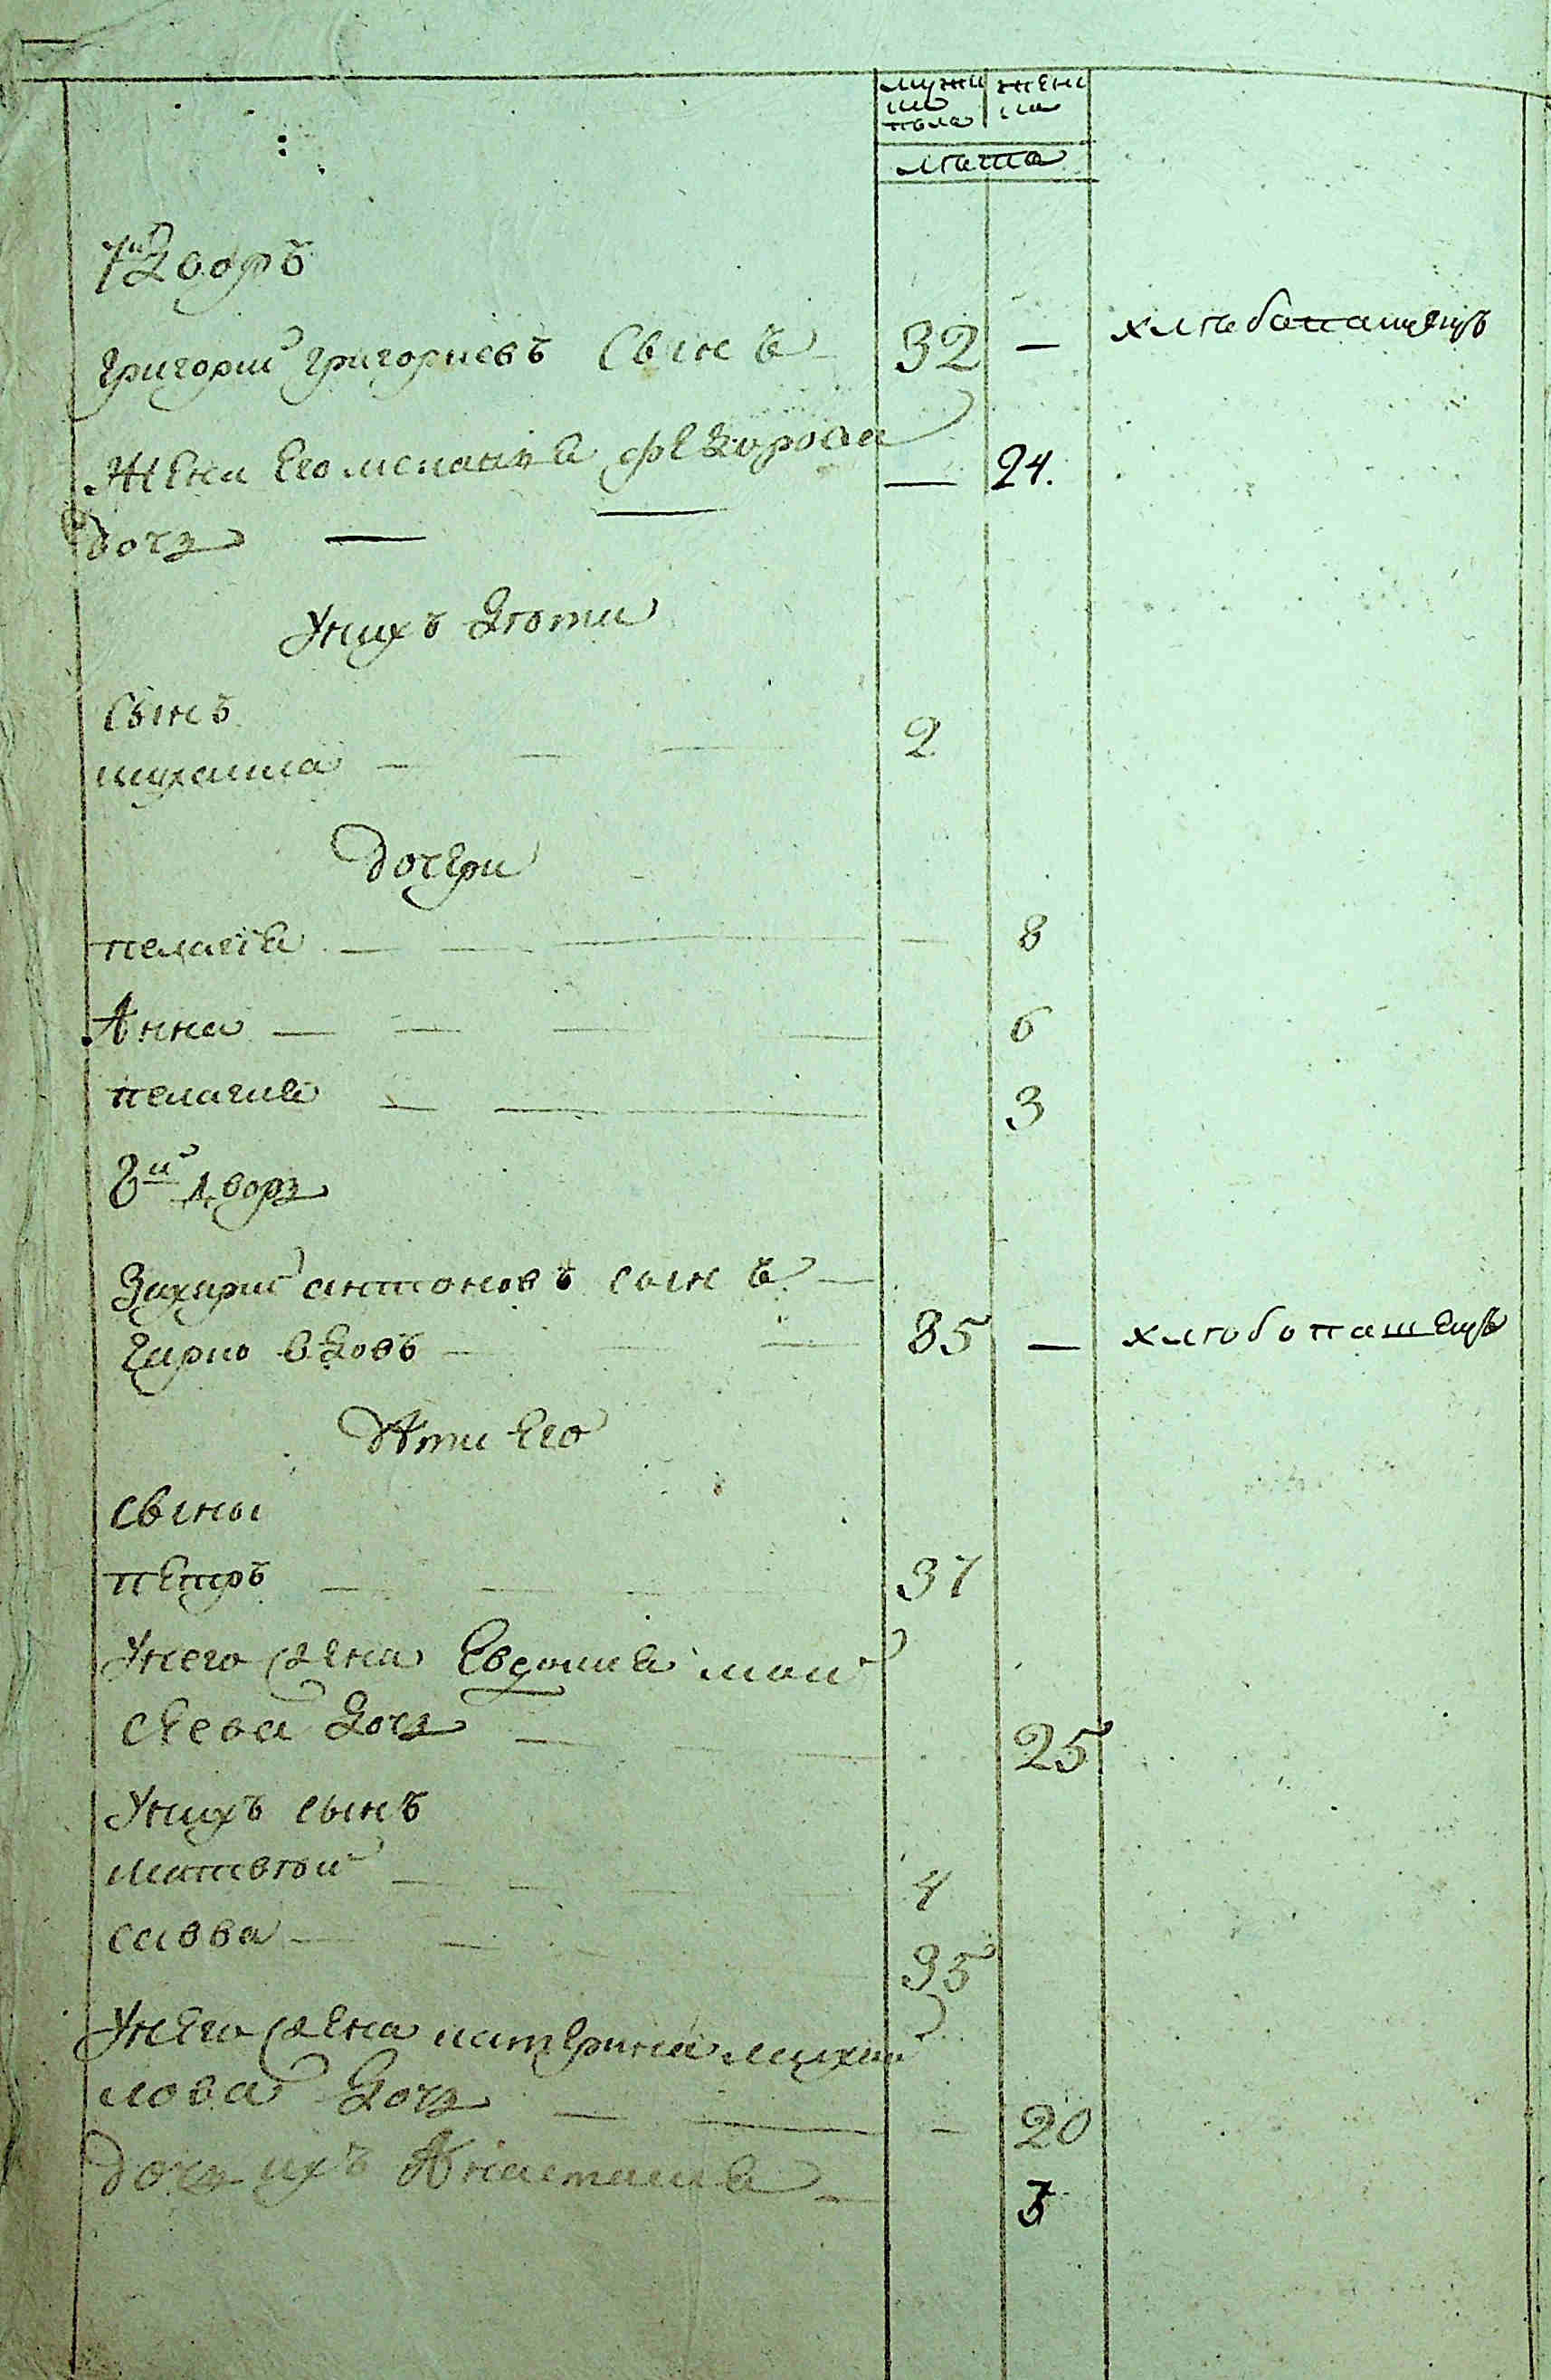 мужи жені
ска на
пола
лѣта
7й Дворъ
Григорий Григориевъ Сынъ 32 — хлѣбопашецъ
Жена Его мелания федорова — 24.
дочь —
У нихъ дѣти
Сынъ
михаила — — — 2
дочери
пелагія — — — — 8
Анна — — — — 6
пелагия — — 3
8й дворъ
Захарий антоновъ сынъ —
85 — хлѣбопашецъ
дѣти Его
сыны
петръ — — — 37
У него жена Евдокия мои
сеева дочь — — — 25
У нихъ сынъ
матвѣй — — — 4
савва — — 35
У него жена катерина михаи
лова дочь — — — 20
дочь ихъ Анастасия —